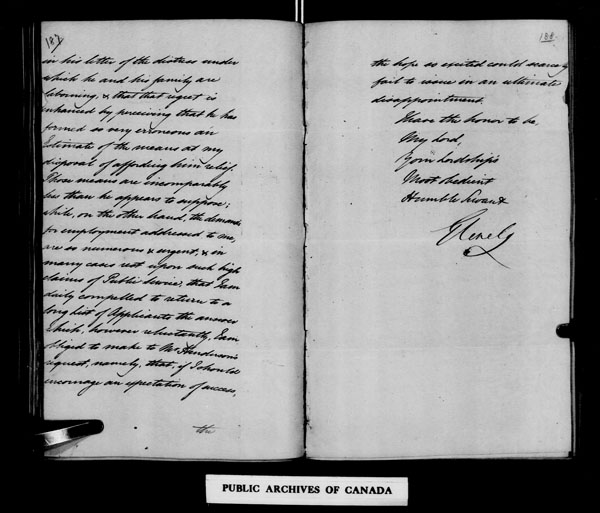 187
in his letter of the distress under
which he and his family are
labouring, & that that regret is
enhanced by perceiving that he has
formed so very erroneous an
Estimate of the means at my
disposal of affording him relief.
Those means are incomparably
less than he appears to suppose;
while, on the other hand, the demands
for employment addressed to me,
are so numerous & urgent, & in
many cases rest upon such high
claims of Public Service, that I am
daily compelled to return to a
long list of Applicants the answer
which, however reluctantly, I am
obliged to make to Mr Henderson's
request, namely, that, if I should
encourage an expectation of success,
the
188
the hope so excited could scarcely
fail to issue in an ultimate
disappointment.
I have the honor to be,
My Lord,
Your Lordship's
Most Obedient
Humble Servant
Glenelg
PUBLIC ARCHIVES OF CANADA